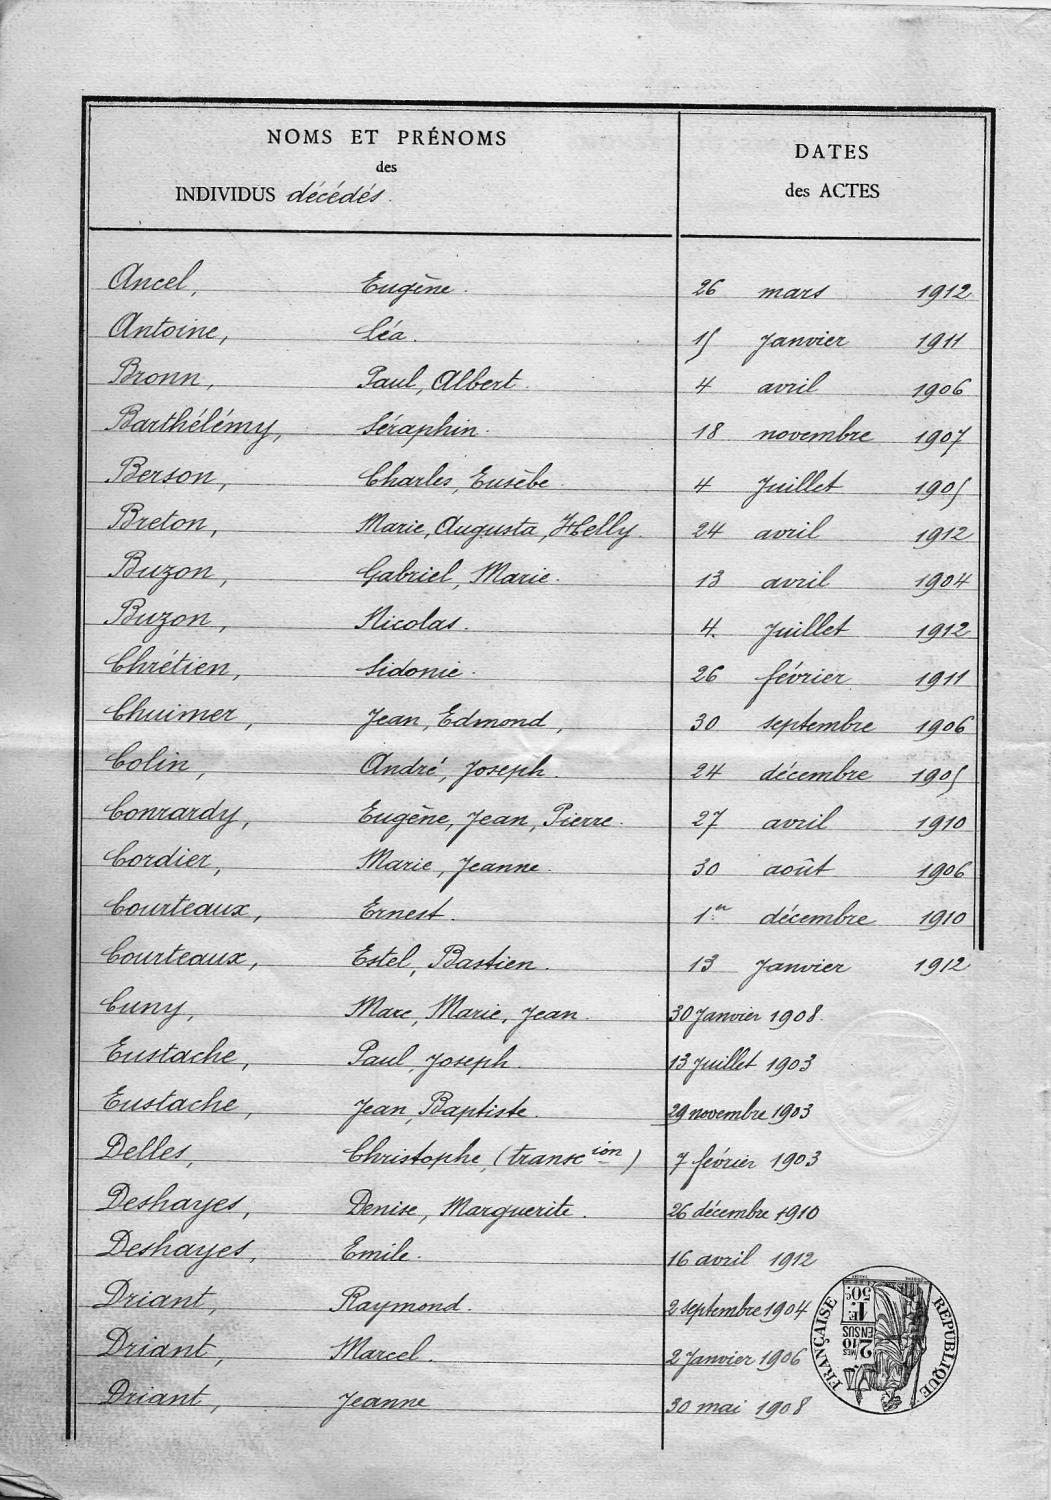 NOMS ET PRÉNOMS
des
INDIVIDUS décédés.
DATES
des ACTES
Ancel, Eugène. 26 mars 1912
Antoine, Léa. 15 Janvier 1911
Bronn, Paul, Albert. 4 avril 1906
Barthélémy, Séraphin. 18 novembre 1907
Berson, Charles, Eusèbe. 4 Juillet 1905
Breton, Marie, Augusta, Helly. 24 avril 1912
Buzon, Gabriel, Marie. 13 avril 1904
Buzon, Nicolas. 4. Juillet 1912
Chrétien, Sidonie. 26 février 1911
Chuimer, Jean, Edmond, 30 septembre 1906
Colin, André, Joseph. 24 décembre 1905
Conrardy, Eugène, Jean, Pierre. 27 avril 1910
Cordier, Marie, Jeanne. 30 août 1906
Courteaux, Ernest. 1er décembre 1910
Courteaux, Estel, Bastien. 13 Janvier 1912
Cuny, Marc, Marie, Jean. 30 Janvier 1908.
Eustache, Paul, Joseph. 13 Juillet 1903
Eustache, Jean, Baptiste. 29 novembre 1903
Delles, Christophe, (transcion) 7 février 1903
Deshayes, Denise, Marguerite. 26 décembre 1910
Deshayes, Emile. 16 avril 1912
Driant, Raymond. 2 septembre 1904
Driant, Marcel. 2 Janvier 1906
Driant, Jeanne 30 mai 1908
RÉPUBLIQUE FRANÇAISE
2/10 MES
EN SUS
1F
50c